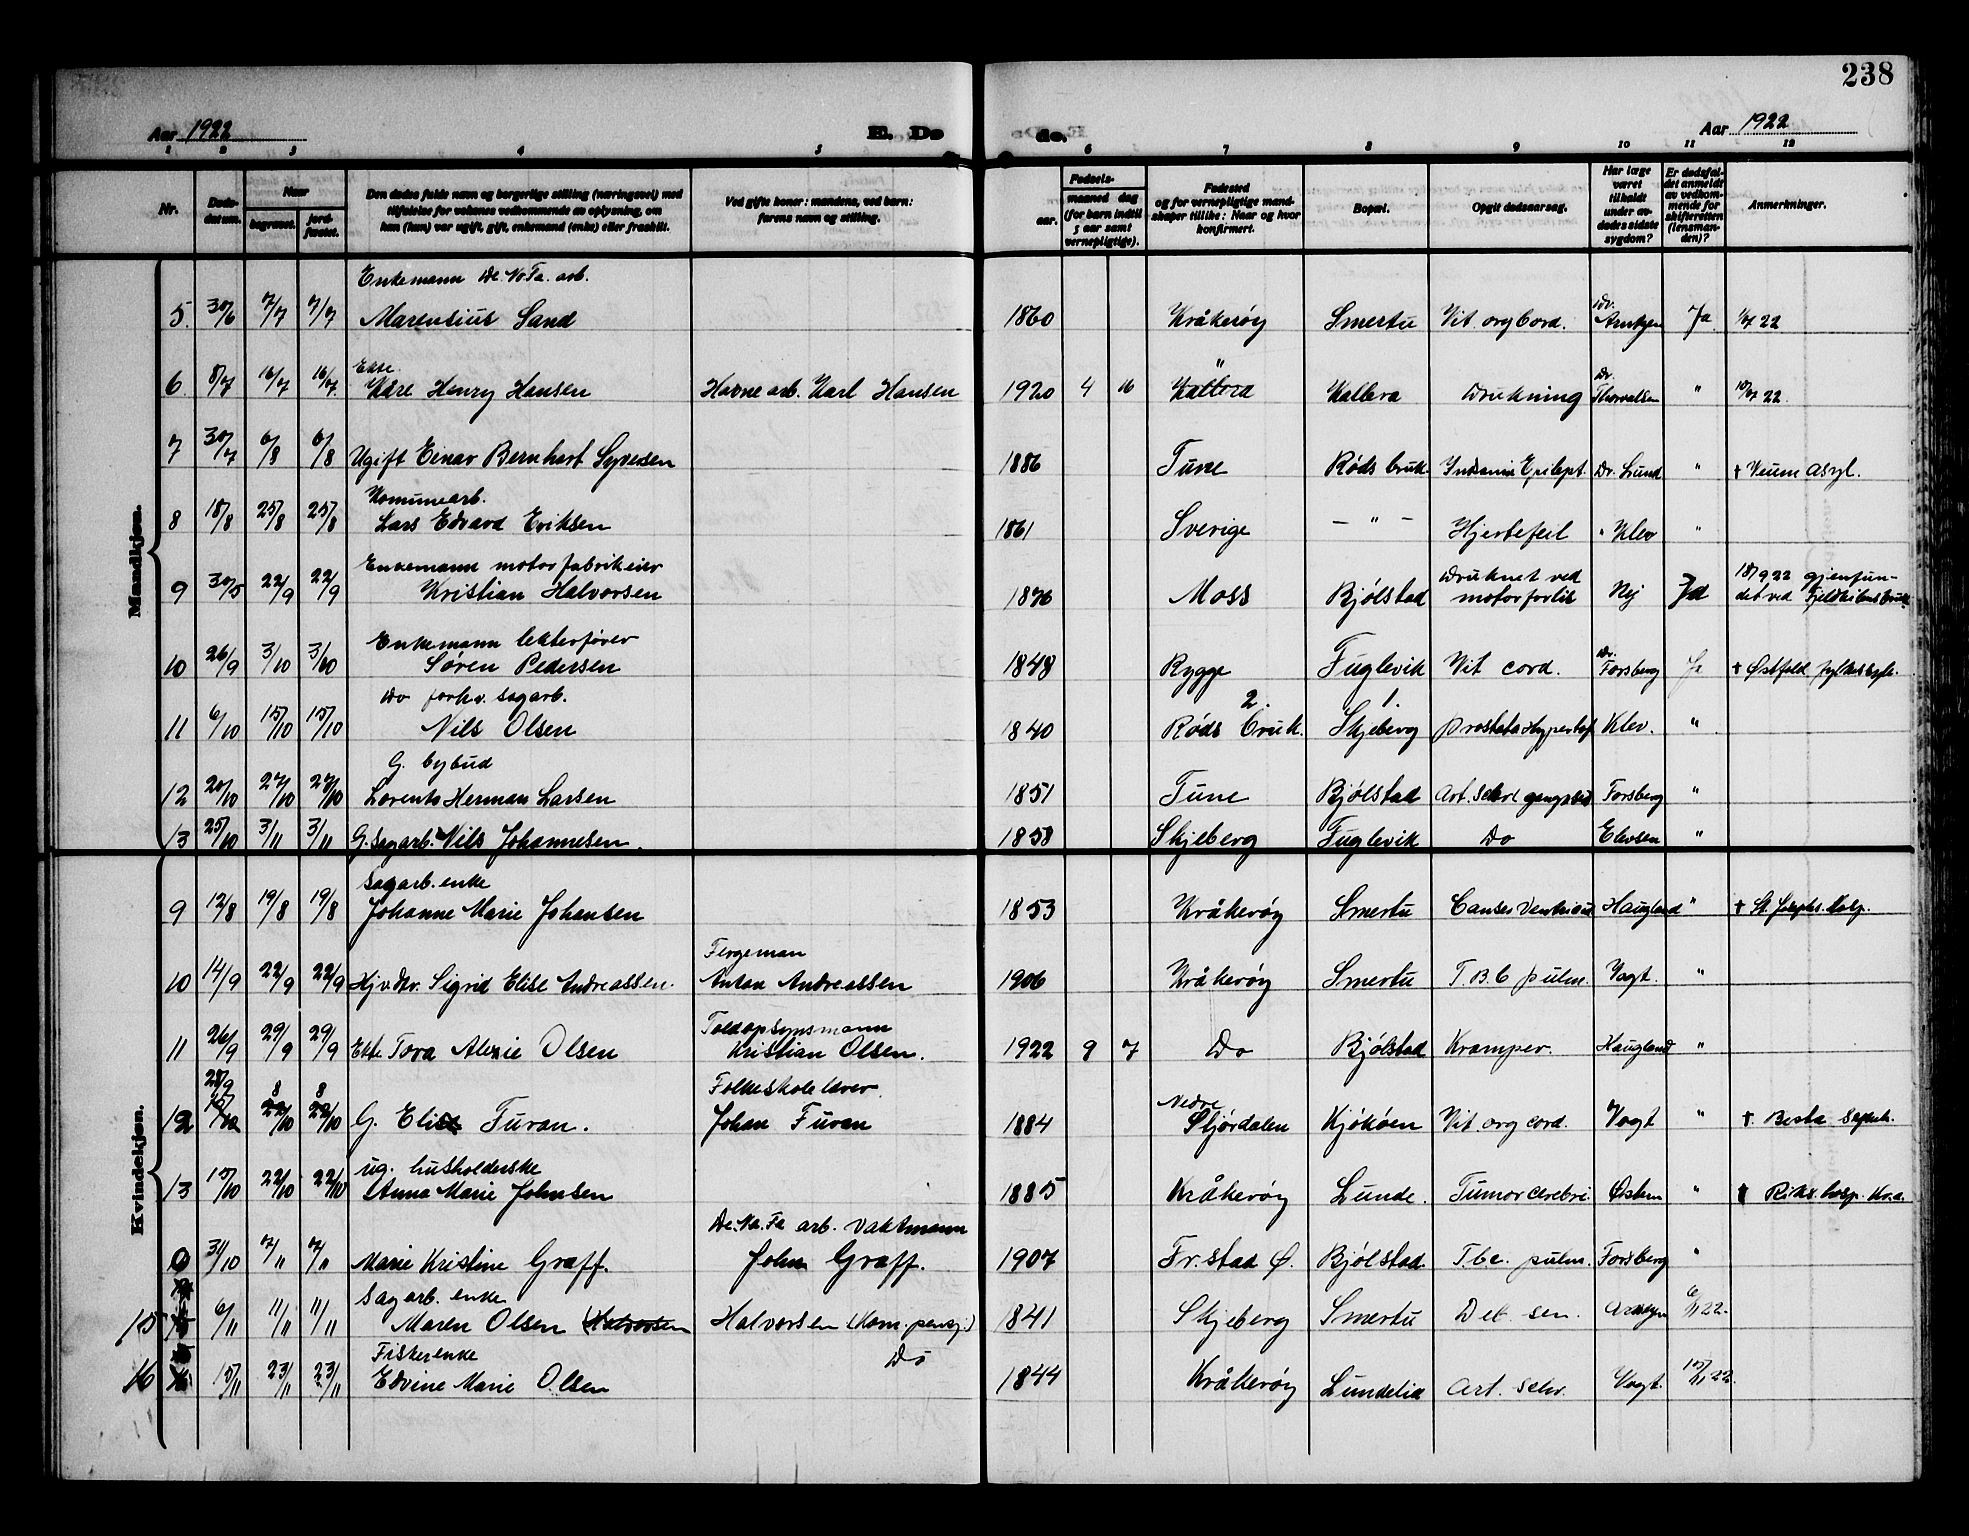 238
Aar 1922 E. Dø
de. Aar 1922
1 2 3 4 5 6 7 8 9 10 11 12
Nr.
Døds-datum.
Naar
begravet.
jord-fæstet.
Den dødes fulde navn og borgerlige stilling (næringsvei) med
tilføielse for voksnes vedkommende av oplysning, om
han (hun) var ugift, gift, enkemand (enke) eller fraskilt.
Ved gifte koner: mandens, ved barn:
farens navn og stilling.
Fødsels-
aar.
maaned dag
(for barn indtil
5 aar samt
vernepligtige).
Fødested
og for vernepligtige mand-
skaper tillike: Naar og hvor
konfirmert.
Bopæl.
Opgit dødsaarsag.
Har læge
været
tilkaldt
under av-
dødes sidste
sygdom?
Er dødsfal-
det anmeldt
av vedkom-
mende for
skifteretten
(lensman-
den)?
Anmerkninger.
Mandkjøn.
Enkemann De. No. Fa. arb.
5 30/6 7/7 7/7 Marensius Sand 1860 Kråkerøy Smertu Vit. org cord. Dr. Arntzen Ja 1/7 22
Ekte
6 8/7 16/7 16/7 Kåre Henry Hansen Havnearb. Karl Hansen 1920 4 16 " Kallera Drukning Dr. Thorvalsen " 10/7 22
7 30/7 6/8 6/8 Ugift Einar Bernhart Syversen 1886 Tune Røds bruk Epilept. Dr. Lund " † Veum asyl.
Komunearb.
8 18/8 25/8 25/8 Lars Edvard Eriksen 1861 Sverige - " - Hjertefeil " Klev "
Enkemann motorfabrikeier
9 30/5 22/9 22/9 Kristian Halvorsen 1876 Moss Bjølstad Druknet ved motorforlis Nej Ja 18/9 22 gjenfun-
det ved
Enkemann lekterfører
10 26/9 3/10 3/10 Søren Pedersen 1848 Rygge Fuglevik Vit cord. Dr. Forsberg Ja † Østfold fylkessyk.
Do forhv. sagarb. 2. 1.
11 6/10 15/10 15/10 Nils Olsen 1840 Røds bruk. Skjeberg Prostata Hypertrof Klev. "
G. bybud
12 20/10 27/10 27/10 Lorents Herman Larsen 1851 Tune Bjølstad Art. Forsberg "
13 25/10 3/11 3/11 G. sagarb. Nils Johannesen. 1858 Skjeberg Fuglevik Do "
Kvindekjøn.
Sagarb. enke
9 12/8 19/8 19/8 Johanne Marie Johansen 1853 Kråkerøy Smertu Haugland " † St. Josephs. Hosp.
Fergeman
10 14/9 22/9 22/9 Hjv. dtr. Sigrid Elise Andreassen. Anton Andreassen 1906 Kråkerøy Smertu T.B.C pulm. Vogt. "
Toldopsynsmann
11 26/9 29/9 29/9 Ekte Tora Alexie Olsen Kristian Olsen. 1922 9 7 Do Bjølstad Kramper. Haugland "
28/9 8 8 Folkeskolelærer Nedre
12 22/10 22/10 G. Elise Furan. Johan Furan 1884 Stjørdalen Kjøkøen Vit. org cord. Vogt "
ug. husholderske
13 15/10 22/10 22/10 Anna Marie Johnsen 1885 Kråkerøy Lunde. Tumor cerebri. " † Riks. hosp. Kr.a.
De. No. Fa arb. Vaktmann
31/10 7/11 7/11 Marie Kristine Graff. John Graff. 1907 Fr.stad Ø. Bjølstad. T.bc. pulm. Forsberg "
Sagarb. enke
15 6/11 11/11 11/11 Maren Olsen (Halvorsen Halvorsen (Kom. pensj.) 1841 Skjeberg Smertu Deb. sen. Arntzen 6/11 22.
Fiskerenke Do
16 15/11 23/11 23/11 Edvine Marie Olsen 1844 Kråkerøy Lundelid Art. Vogt. 15/11 22.